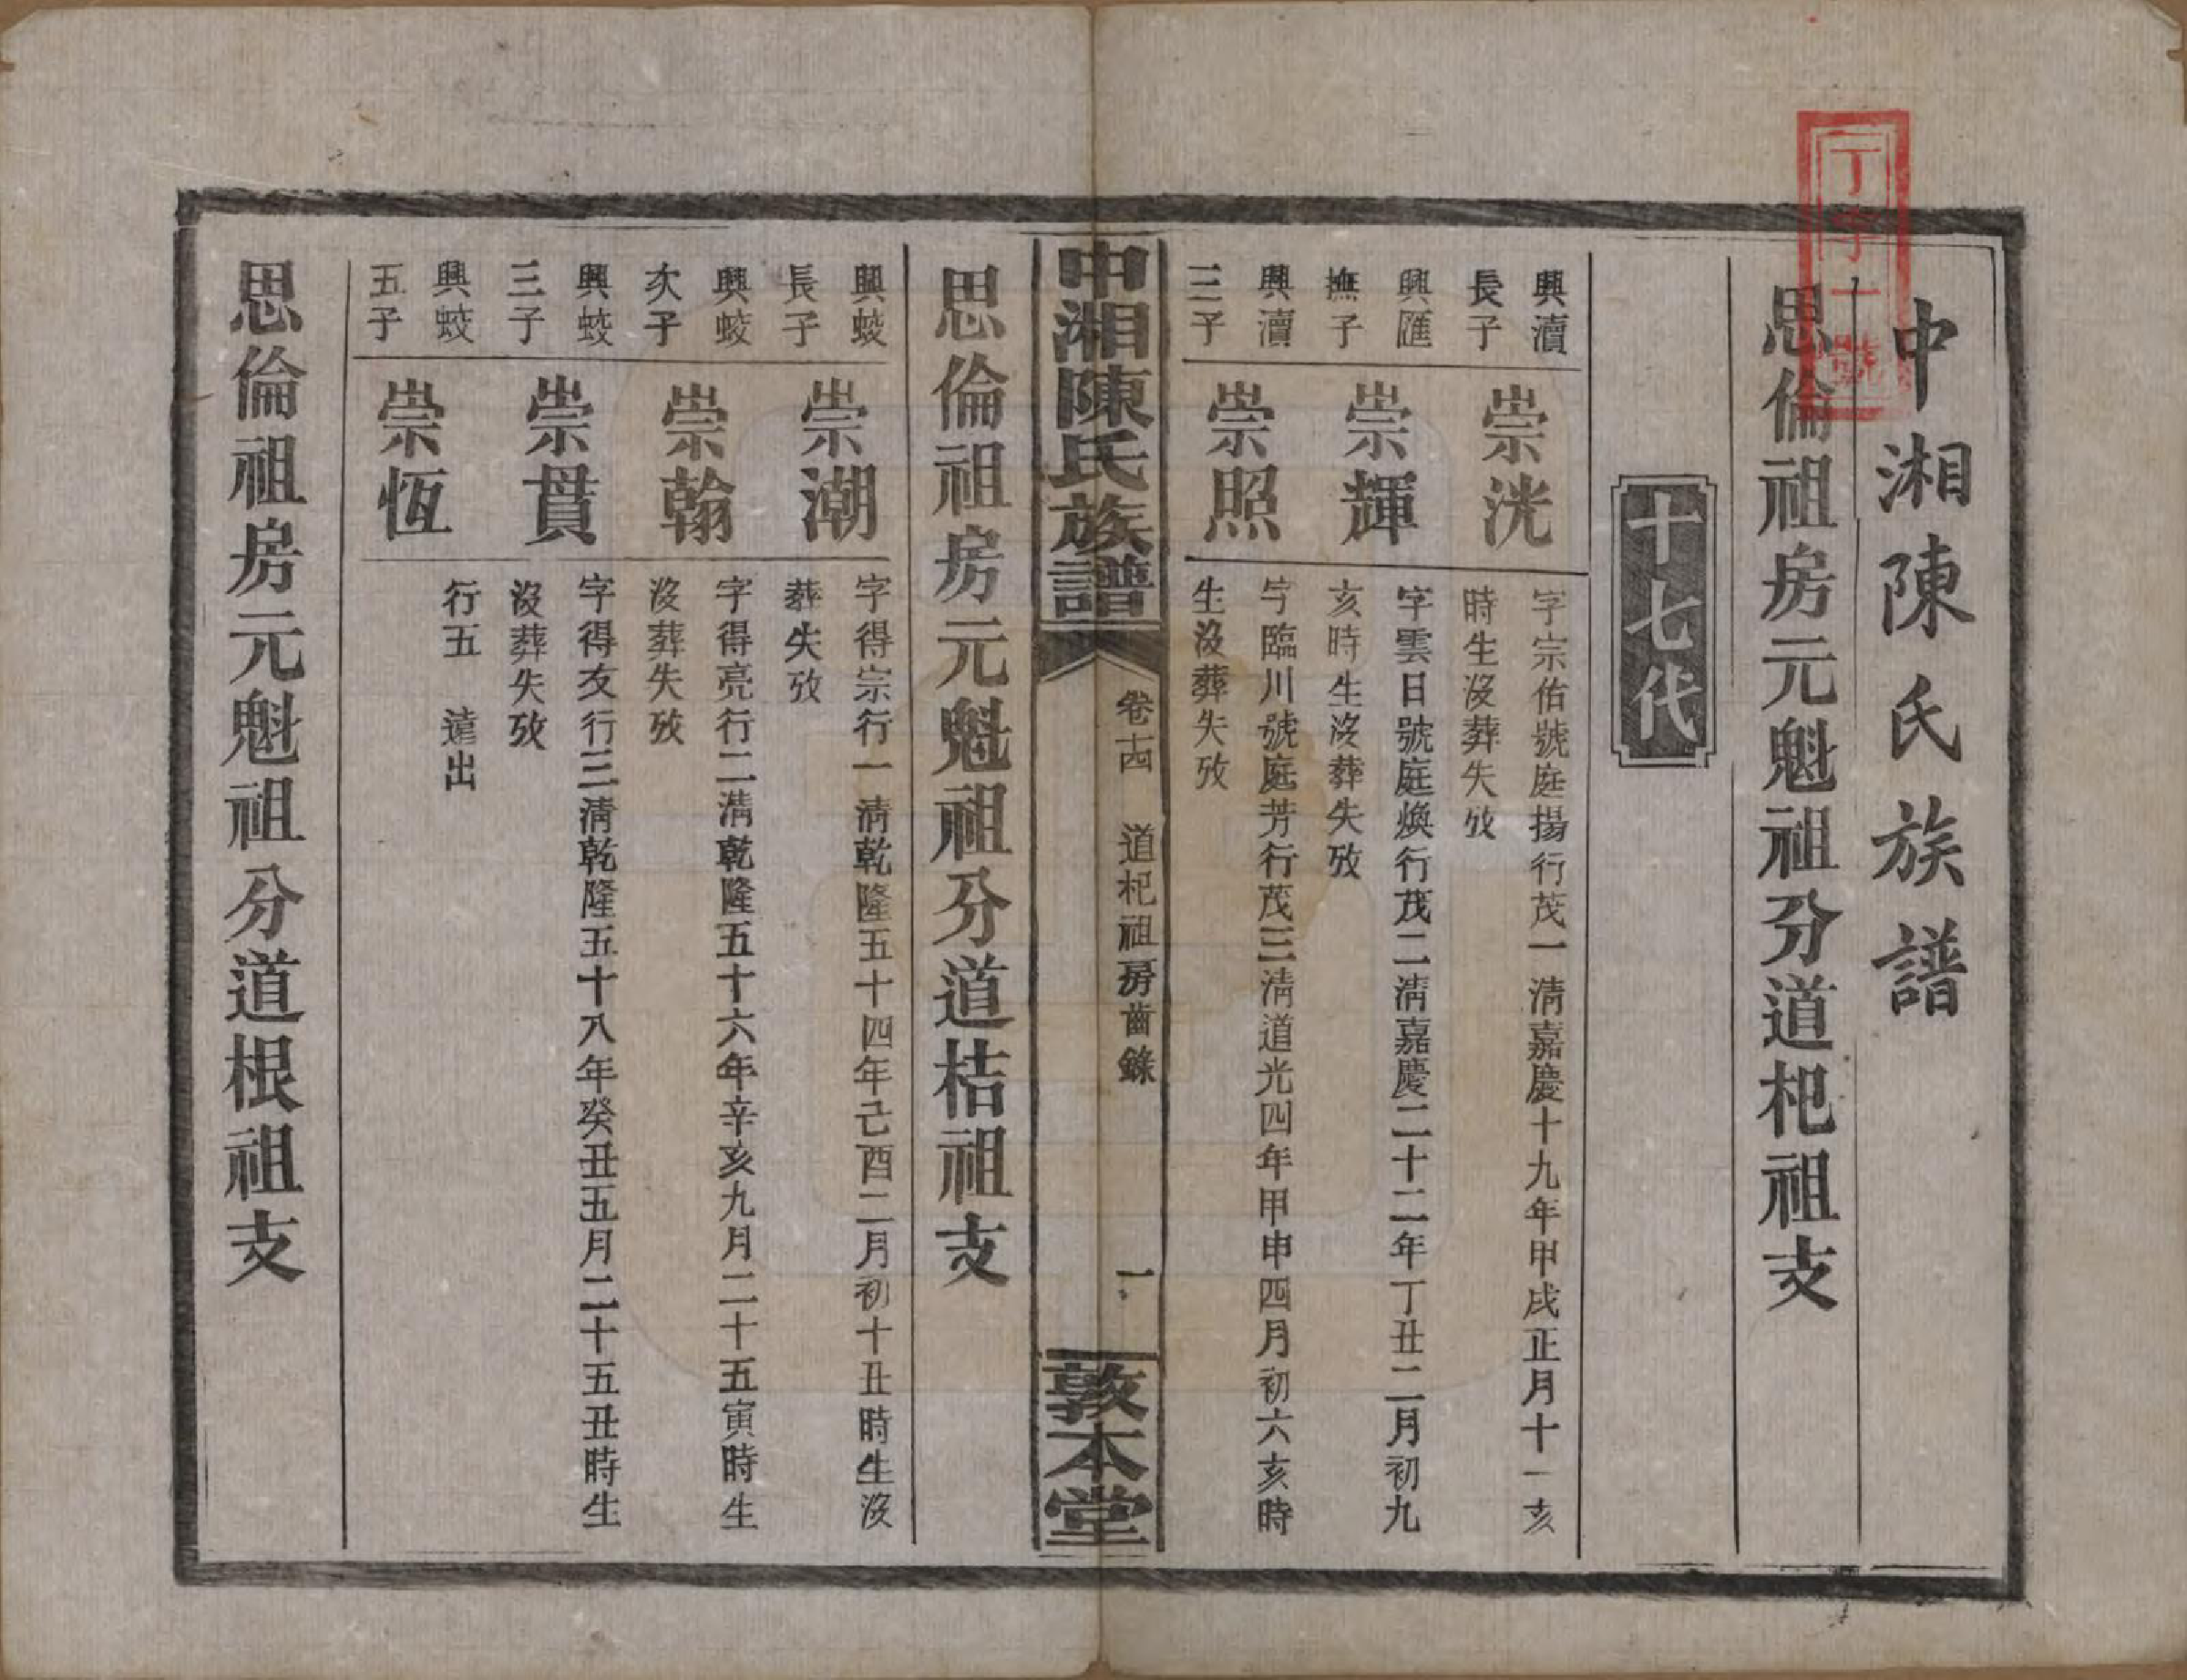 丁字一號
中湘陳氏族譜
思倫祖房元魁祖分道杷祖支
十七代
興瀆
長子
崇洸
字宗佑號庭揚行茂一清嘉慶十九年甲戌正月十一亥
時生沒葬失攷
興匯
撫子
崇輝
字雲日號庭煥行茂二清嘉慶二十二年丁丑二月初九
亥時生沒葬失攷
興瀆
三子
崇照
字臨川號庭芳行茂三清道光四年甲申四月初六亥時
生沒葬失攷
中湘陳氏族譜
卷十四 道杷祖房齒錄
一
敦本堂
思倫祖房元魁祖分道桔祖支
興蛟
長子
崇潮
字得宗行一清乾隆五十四年己酉二月初十丑時生沒
葬失攷
興蛟
次子
崇翰
字得亮行二清乾隆五十六年辛亥九月二十五寅時生
沒葬失攷
興蛟
三子
崇貫
字得友行三清乾隆五十八年癸丑五月二十五丑時生
沒葬失攷
興蛟
五子
崇恆
行五 遠出
思倫祖房元魁祖分道根祖支